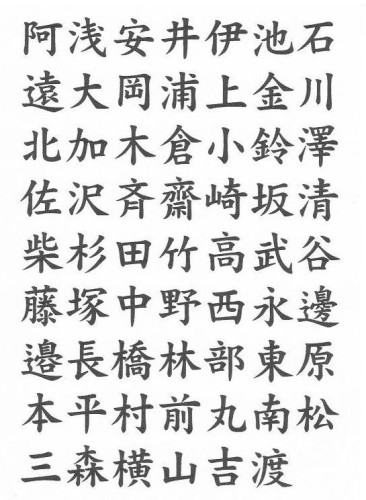 阿浅安井伊池石
遠大岡浦上金川
北加木倉小鈴澤
佐沢斉齋崎坂清
柴杉田竹高武谷
藤塚中野西永邊
邉長橋林部東原
本平村前丸南松
三森横山吉渡